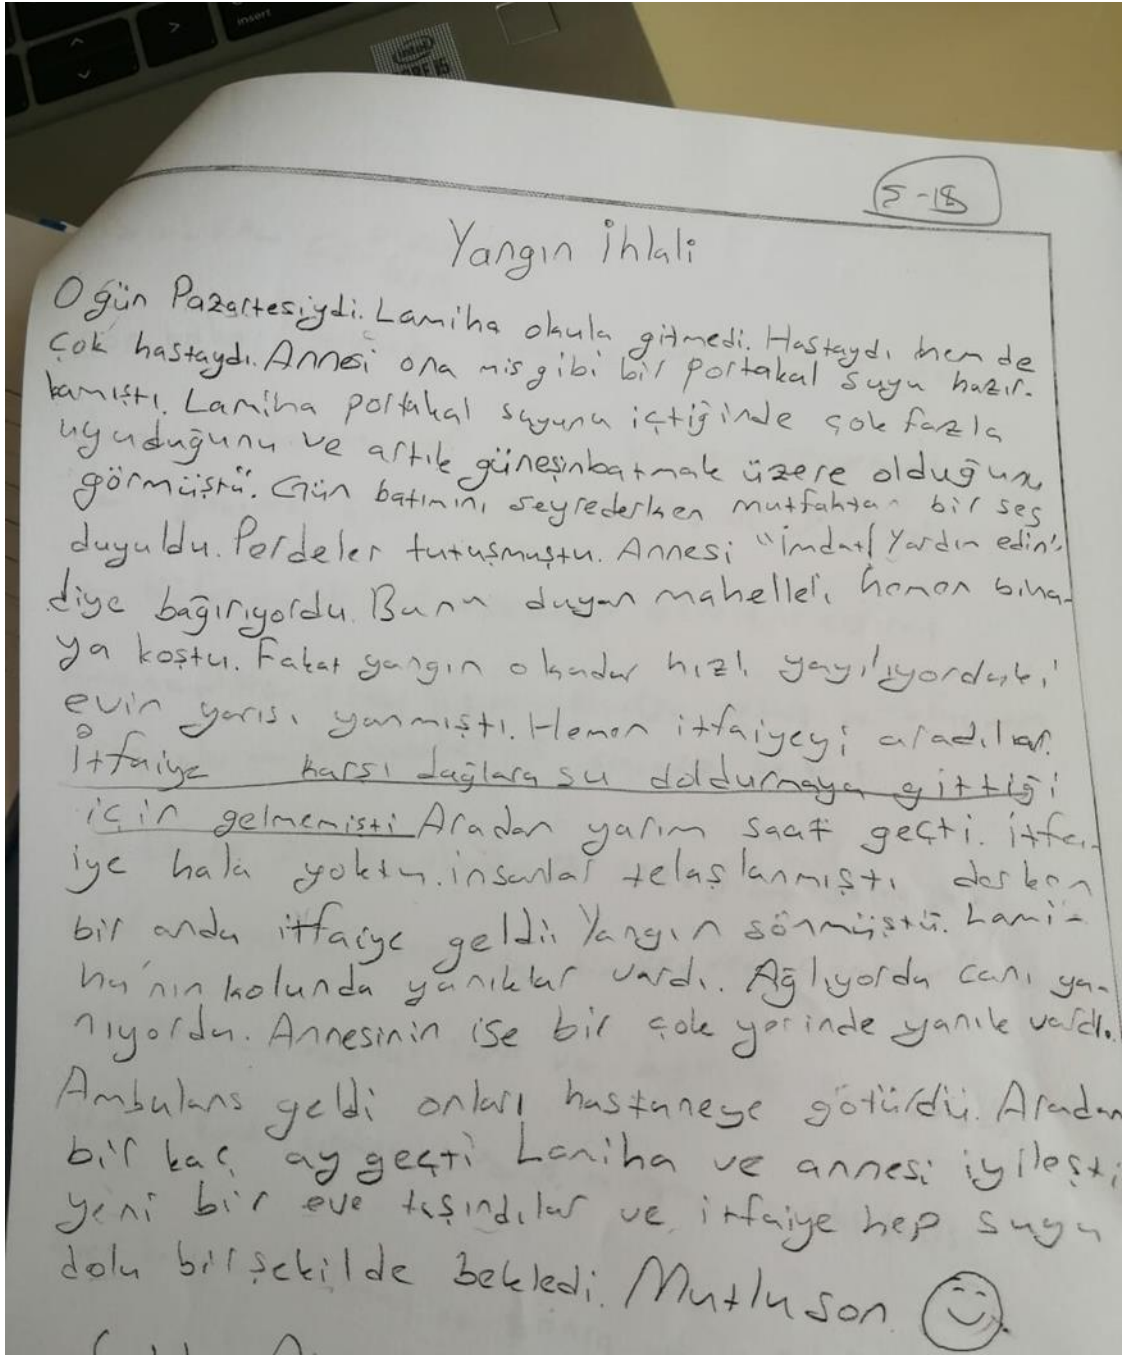 insert
intel
CORE i5
5-18
Yangın İhlali
O gün Pazartesiydi. Lamiha okula gitmedi. Hastaydı hem de
çok hastaydı. Annesi ona mis gibi bir portakal suyu hazır-
lamıştı. Lamiha portakal suyunu içtiğinde çok fazla
uyuduğunu ve artık güneşinbatmak üzere olduğunu
görmüştü. Gün batımını seyrederken mutfaktan bir ses
duyuldu. Perdeler tutuşmuştu. Annesi "İmdat! Yardım edin"
diye bağırıyordu. Bunu duyan mahalleli hemen bina-
ya koştu. Fakat yangın okadar hızlı yayılıyorduki
evin yarısı yanmıştı. Hemen itfaiyeyi aradılar.
İtfaiye karşı dağlara su doldurmaya gittiği
için gelmemişti Aradan yarım saat geçti. itfa-
iye hala yoktu. insanlar telaşlanmıştı derken
bir anda itfaiye geldi. Yangın sönmüştü. Lami-
ha'nın kolunda yanıklar vardı. Ağlıyordu canı ya-
nıyordu. Annesinin ise bir çok yerinde yanık vardı.
Ambulans geldi onları hastaneye götürdü. Aradan
bir kaç ay geçti Lamiha ve annesi iyileşti
yeni bir eve taşındılar ve itfaiye hep suyu
dolu bir şekilde bekledi. Mutlu son